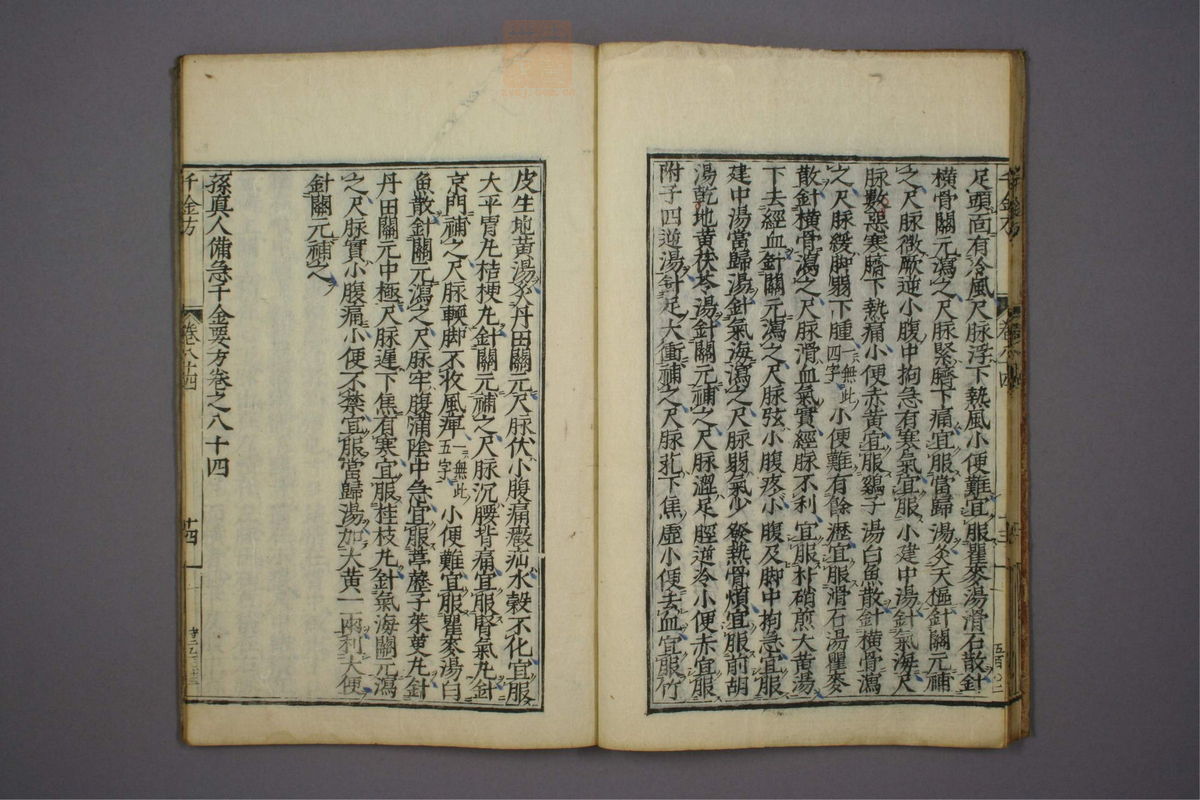 足頭面有冷風尺脉浮下熱風小便難宜服瞿麥湯滑石散針
橫骨關元瀉之尺脉緊臍下痛宜服當歸湯灸天樞針關元補
之尺脉微厥逆小腹中拘急有寒氣宜服小建中湯針氣海尺
脉數惡寒臍下熱痛小便赤黃宜服鷄子湯白魚散針橫骨瀉
之尺脉緩脚弱下腫一無此四字小便難有餘瀝宜服滑石湯瞿麥
散針橫骨瀉之尺脉滑血氣實經脉不利宜服朴硝煎大黃湯
下去經血針關元瀉之尺脉弦小腹疼小腹及脚中拘急宜服
建中湯當歸湯針氣海瀉之尺脉弱氣少發熱骨煩宜服前胡
湯乾地黃茯苓湯針關元補之尺脉濇足脛逆冷小便赤宜服
附子四逆湯針足大衝補之尺脉芤下焦虛小便去血宜服竹
千金方
卷八十四
皮生地黃湯灸丹田關元尺脉伏小腹痛癥疝水穀不化宜服
大平胃丸桔梗丸針關元補之尺脉沉腰背痛宜服腎氣丸針
京門補之尺脉軟脚不收風痺一無此五字小便難宜服瞿麥湯白
魚散針關元瀉之尺脉牢腹滿陰中急宜服葶藶子茱萸丸針
丹田關元中極尺脉遲下焦有寒宜服桂枝丸針氣海關元瀉
之尺脉實小腹痛小便不禁宜服當歸湯加大黃一兩利大便
針關元補之
孫真人備急千金要方卷之八十四
千金方
卷八十四
十四